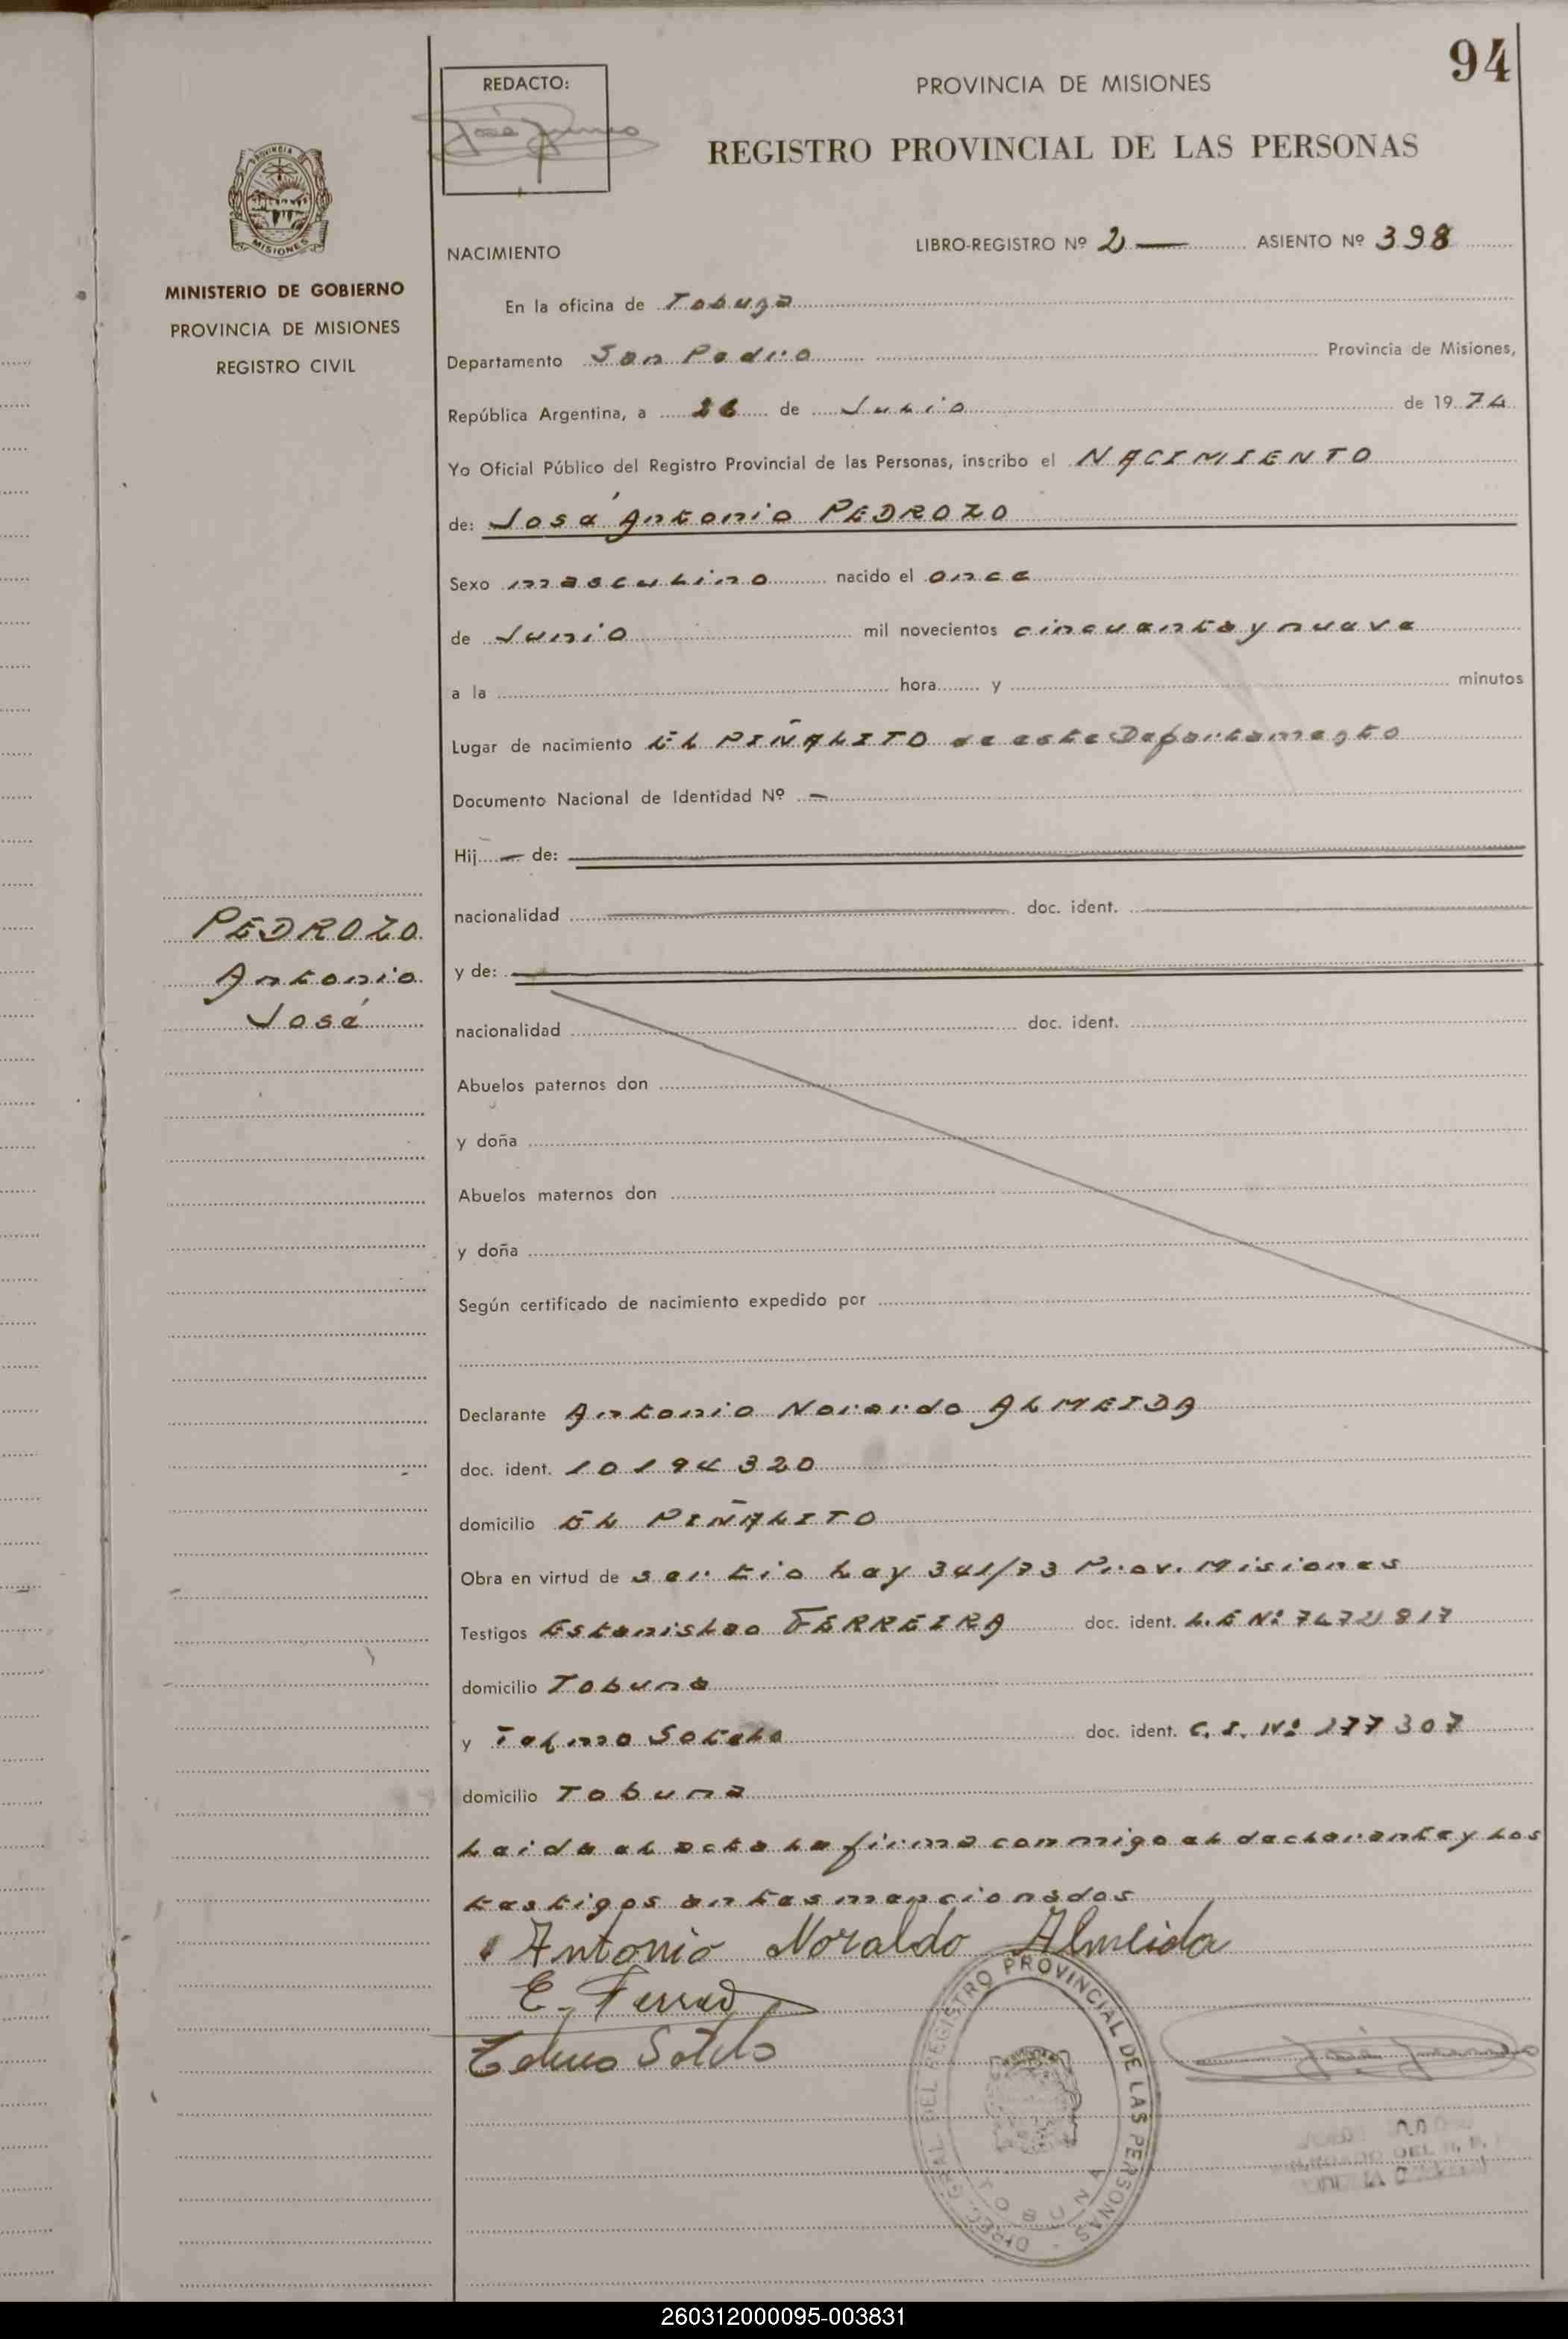 94
REDACTO:
PROVINCIA DE MISIONES
REGISTRO PROVINCIAL DE LAS PERSONAS
MISIONES
MINISTERIO DE GOBIERNO
PROVINCIA DE MISIONES
REGISTRO CIVIL
NACIMIENTO
LIBRO-REGISTRO Nº 2 — ASIENTO Nº 398
En la oficina de Tobuna
Departamento San Pedro Provincia de Misiones,
República Argentina, a 26 de Julio de 1974
Yo Oficial Público del Registro Provincial de las Personas, inscribo el NACIMIENTO
de: José Antonio PEDROZO
Sexo masculino nacido el once
de Junio mil novecientos cincuenta y nueve
a la hora y minutos
Lugar de nacimiento EL PIÑALITO de este Departamento
Documento Nacional de Identidad Nº —
Hij — de:
nacionalidad doc. ident.
y de:
nacionalidad doc. ident.
PEDROZO
Antonio
José
Abuelos paternos don
y doña
Abuelos maternos don
y doña
Según certificado de nacimiento expedido por
Declarante Antonio Norardo ALMEIDA
doc. ident. 10194320
domicilio EL PIÑALITO
Obra en virtud de ser tio Ley 341/73 Prov. Misiones
Testigos Estanislao FERREIRA doc. ident. L.E Nº 7472817
domicilio Tobuna
y Telmo Sotelo doc. ident. C.I. Nº 177307
domicilio Tobuna
Leida el acta la firma conmigo el declarante y los
testigos antes mencionados
Antonio Noraldo Almeida
E. Ferreira
Telmo Sotelo
DIREC. GRAL. DEL REGISTRO PROVINCIAL DE LAS PERSONAS
TOBUNA
260312000095-003831